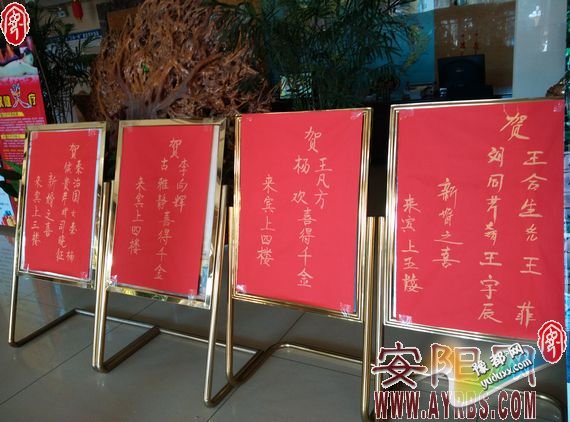 贺
秦治国女秦杨
新婚之喜
来宾上三楼
贺
李向辉
古雅静喜得千金
来宾上四楼
贺
王凡方
杨欢喜得千金
来宾上四楼
贺
王合生 王菲
刘同芹 王宇辰
新婚之喜
来宾上五楼
安阳网
WWW.AYRBS.COM
豫都网